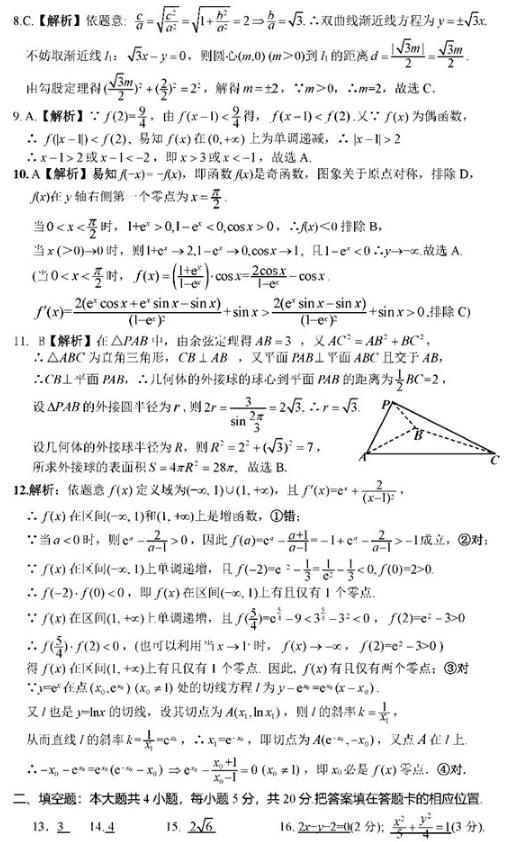 8.C.【解析】依题意: c/a=√(c²/a²)=√(1+b²/a²)=2⇒b/a=√3.∴双曲线渐近线方程为 y=±√3x.
不妨取渐近线 l₁: √3x−y=0, 则圆心(m,0) (m>0)到 l₁的距离 d=|√3m|/2=√3m/2.
由勾股定理得(√3m/2)²+(2/2)²=2², 解得 m=±2, ∵m>0, ∴m=2, 故选 C.
9. A.【解析】∵f(2)=9/4, 由 f(x−1)<9/4得, f(x−1)<f(2).又∵f(x)为偶函数,
∴ f(|x−1|)<f(2), 易知 f(x)在(0,+∞)上为单调递减, ∴|x−1|>2
∴x−1>2或x−1<−2, 即x>3或x<−1, 故选 A.
10. A【解析】易知 f(−x)= −f(x), 即函数 f(x)是奇函数, 图象关于原点对称, 排除 D,
f(x)在 y 轴右侧第一个零点为 x=π/2.
当0<x<π/2时, 1+eˣ>0,1−eˣ<0,cosx>0, ∴f(x)<0排除 B,
当 x (>0)→0时, 则1+eˣ→2,1−eˣ→0,cosx→1, 且1−eˣ<0∴y→−∞.故选 A.
(当0<x<π/2时, f(x)=((1+eˣ)/(1−eˣ))·cosx=2cosx/(1−eˣ)−cosx.
f′(x)=2(eˣcosx+eˣsinx−sinx)/(1−eˣ)²+sinx>2(eˣsinx−sinx)/(1−eˣ)²+sinx>0,排除 C)
11. B【解析】在△PAB中, 由余弦定理得 AB=3 , 又 AC²=AB²+BC²,
∴△ABC为直角三角形, CB⊥AB , 又平面 PAB⊥平面 ABC 且交于 AB,
∴CB⊥平面 PAB, ∴几何体的外接球的球心到平面 PAB 的距离为½BC=2,
设 ΔPAB的外接圆半径为 r, 则 2r=3/sin(2π/3)=2√3,∴r=√3.
P
B
A
C
设几何体的外接球半径为 R, 则 R²=2²+(√3)²=7,
所求外接球的表面积 S=4πR²=28π, 故选 B.
12.解析: 依题意 f(x)定义域为(−∞, 1)∪(1, +∞), 且 f′(x)=eˣ+2/(x−1)²,
∴ f(x)在区间(−∞, 1)和(1, +∞)上是增函数, ①错;
∵当a<0时, 则eᵃ−2/(a−1)>0, 因此 f(a)=eᵃ−(a+1)/(a−1)=−1+eᵃ−2/(a−1)>−1成立, ②对;
∵ f(x)在区间(−∞, 1)上单调递增, 且 f(−2)=e⁻²−1/3=1/e²−1/3<0,f(0)=2>0.
∴ f(−2)·f(0)<0, 即 f(x)在区间(−∞, 1)上有且仅有 1 个零点.
∵ f(x)在区间(1, +∞)上单调递增, 且 f(5/4)=e^(5/4)−9<3^(5/4)−3²<0, f(2)=e²−3>0
∴ f(5/4)·f(2)<0, (也可以利用当x→1⁺时, f(x)→−∞, f(2)=e²−3>0)
得 f(x)在区间(1, +∞)上有且仅有 1 个零点. 因此, f(x)有且仅有两个零点; ③对
∵y=eˣ在点(x₀,e^x₀) (x₀≠1)处的切线方程 l 为 y−e^x₀=e^x₀(x−x₀).
又 l 也是 y=lnx 的切线, 设其切点为 A(x₁,lnx₁), 则 l 的斜率 k=1/x₁,
从而直线 l 的斜率 k=1/x₁=e^x₀, ∴x₁=e^−x₀, 即切点为 A(e^−x₀,−x₀), 又点 A 在 l 上.
∴−x₀−e^x₀=e^x₀(e^−x₀−x₀)⇒e^x₀−(x₀+1)/(x₀−1)=0 (x₀≠1), 即 x₀必是 f(x)零点. ④对.
二、填空题: 本大题共 4 小题, 每小题 5 分, 共 20 分.把答案填在答题卡的相应位置.
13. 3 14. 4 15. 2√6 16. 2x−y−2=0(2 分); x²/5+y²/4=1(3 分).